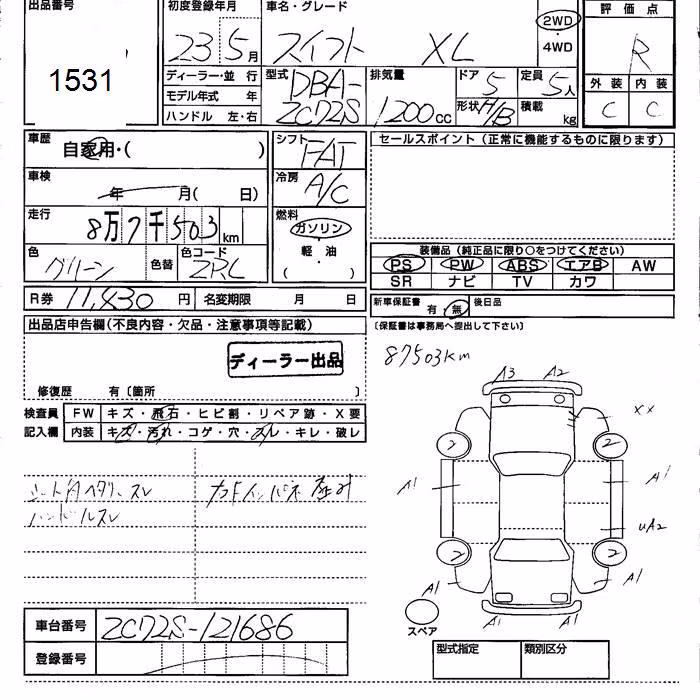 出品番号 初度登録年月 車名・グレード 評価点
1531 23 5月 スイフト XL 2WD・4WD R
ディーラー・並行 型式 DBA-ZC72S 排気量 1200cc ドア 5 定員 5人 外装 内装
モデル年式 年 形状 H/B 積載 kg C C
ハンドル 左・右
車歴 シフト セールスポイント(正常に機能するものに限ります)
自家用・( ) FAT
車検 冷房
年 月( 日) A/C
走行 燃料
8万7千503km ガソリン
軽・油
( )
色 グリーン 色替 色コード ZRL
装備品(純正品に限り○をつけてください)
PS PW ABS エアB AW
SR ナビ TV カワ
R券 11,430円 名変期限 月 日 新車保証書 有 無 後日品
(保証書は事務局へ提出して下さい)
出品店申告欄(不良内容・欠品・注意事項等記載)
ディーラー出品
87503km
修復歴 有〔箇所 〕
検査員 FW キズ・飛石・ヒビ割・リペア跡・X要
記入欄 内装 キズ・汚れ・コゲ・穴・スレ・キレ・破レ
A3 A2
XX
A1 A1
UA2
A1 A1
A1 A1
シート ヘタリ スレ
ハンドルスレ
スペア
車台番号 ZC72S-121686
登録番号
型式指定 類別区分